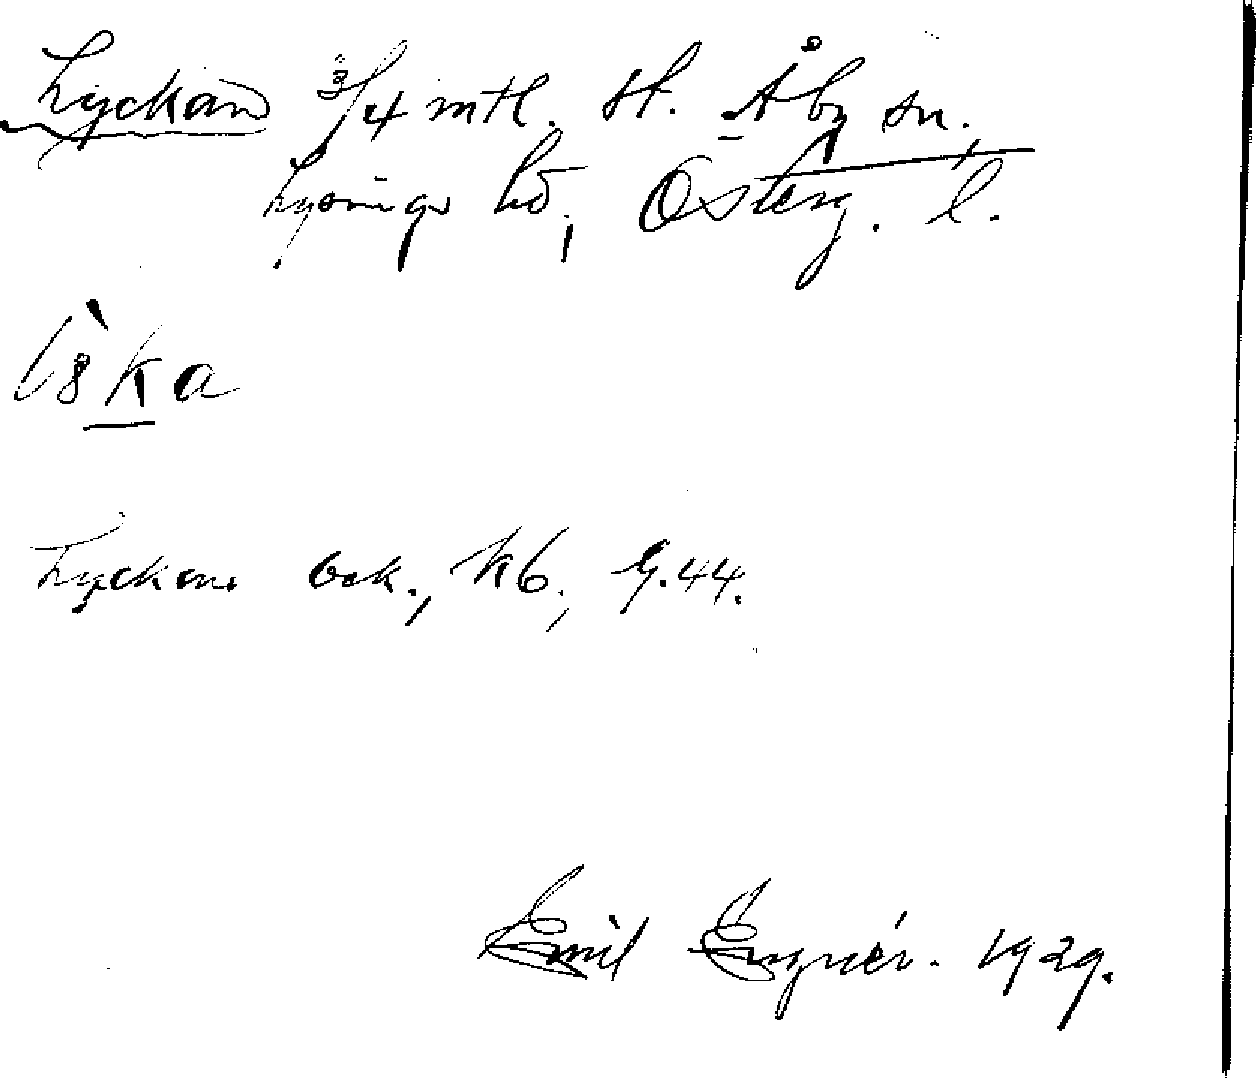 Lyckan 3/4 mtl. St. Åby sn.,
Lysings hd, Österg. l.
Lyckan bek., kb., G.44.
Emil Engnér. 1929.